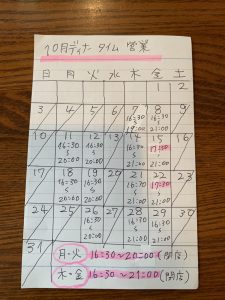 10月ディナータイム 営業
日 月 火 水 木 金 土
1 2
3 4 5 6 7 8 9
16:30 16:30
S S
21:00
10 11 12 13 14 15 16
16:30 16:30 16:30 17:30
S S S S
20:00 20:00 21:00 21:00
17 18 19 20 21 22 23
16:30 16:30 16:30 17:30
S S S S
20:00 20:00 21:00 21:00
24 25 26 27 28 29 30
16:30 16:30
S S
21:00 21:00
31
月・火 16:30~20:00(閉店)
木・金 16:30~21:00(閉店)